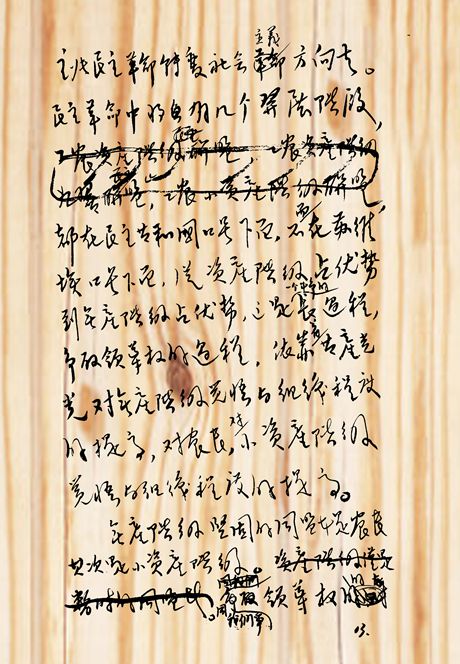 民主革命转变社会主义革命方向去。
民主革命中将有几个发展阶段，
工农资产阶级联盟 工农资产阶级
联盟，工农小资产阶级联盟，
都在民主共和国口号下面，而不在苏维
埃口号下面，从资产阶级占优势
到无产阶级占优势，这是一个长过程，
争取领导权的过程，依靠着共产党
党对无产阶级觉悟与组织程度
的提高，对农民，对小资产阶级
觉悟与组织程度的提高。
无产阶级坚固的同盟者是农民
其次是小资产阶级。资产阶级是
暂时的同盟者。领导权的